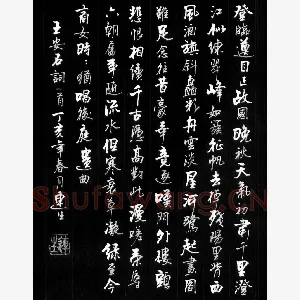 登臨送目正故國晚秋天氣初肅千里澄
江似練翠峰如簇征帆去棹殘陽里背西
風酒旗斜矗彩舟雲淡星河鷺起畫圖
難足念往昔豪華競逐嘆門外樓頭
悲恨相續千古憑高對此漫嗟榮辱
六朝舊事隨流水但寒煙草凝綠至今
商女時時猶唱後庭遺曲
王安石詞一首丁亥年春月建生
Shufawang.cn